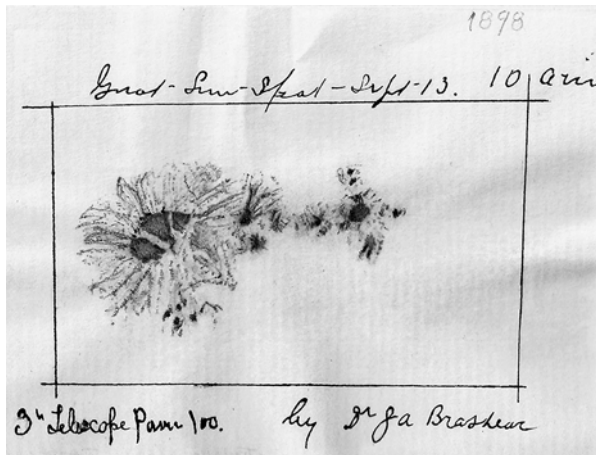 1898
Great-Sun-Spot-Sept-13. 10 am
3" Telescope Power 100. by Dr J a Brashear